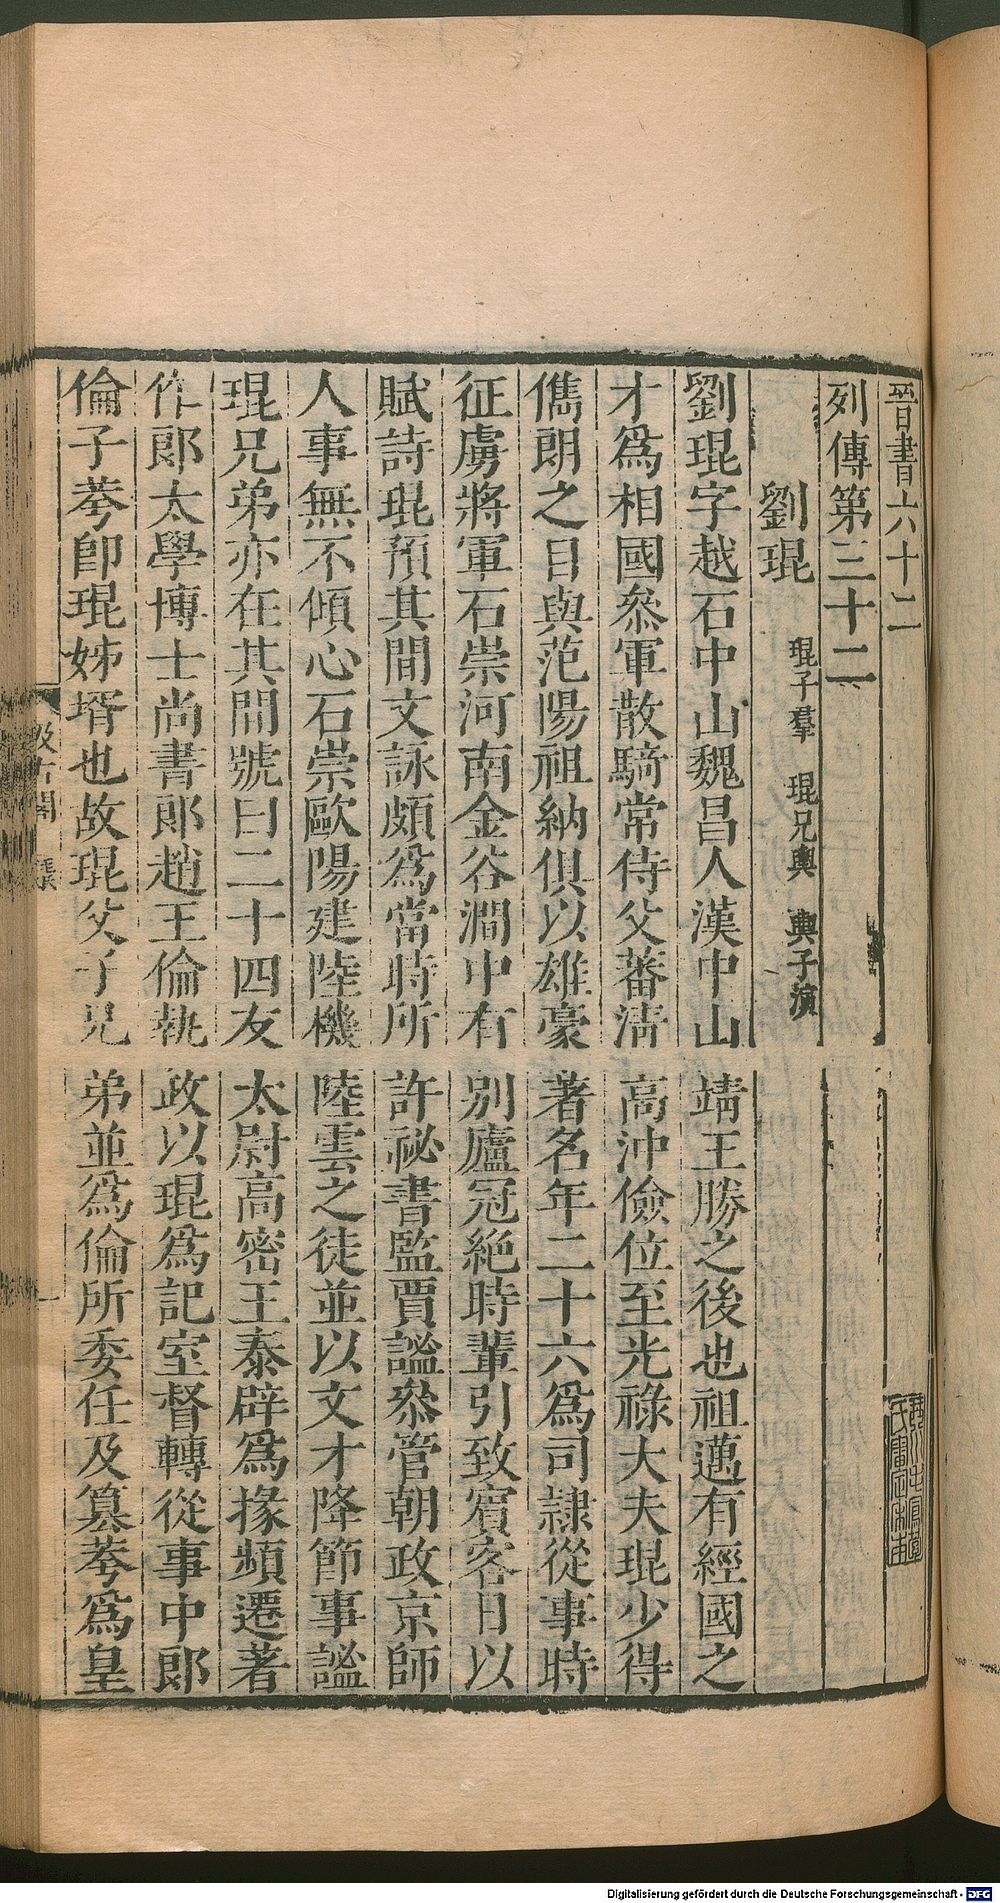 晉書六十二
列傳第三十二
劉琨 琨子羣 琨兄輿 輿子演
劉琨字越石中山魏昌人漢中山靖王勝之後也祖邁有經國之
才爲相國叅軍散騎常侍父蕃淸高沖儉位至光祿大夫琨少得
儁朗之目與范陽祖納俱以雄豪著名年二十六爲司隷從事時
征虜將軍石崇河南金谷澗中有別廬冠絕時輩引致賓客日以
賦詩琨預其間文詠頗爲當時所許祕書監賈謐叅管朝政京師
人事無不傾心石崇歐陽建陸機陸雲之徒並以文才降節事謐
琨兄弟亦在其間號曰二十四友太尉高密王泰辟爲掾頻遷著
作郞太學博士尚書郞趙王倫執政以琨爲記室督轉從事中郞
倫子荂卽琨姊壻也故琨父子兄弟並爲倫所委任及篡荂爲皇
汲古閣
Digitalisierung gefördert durch die Deutsche Forschungsgemeinschaft - DFG